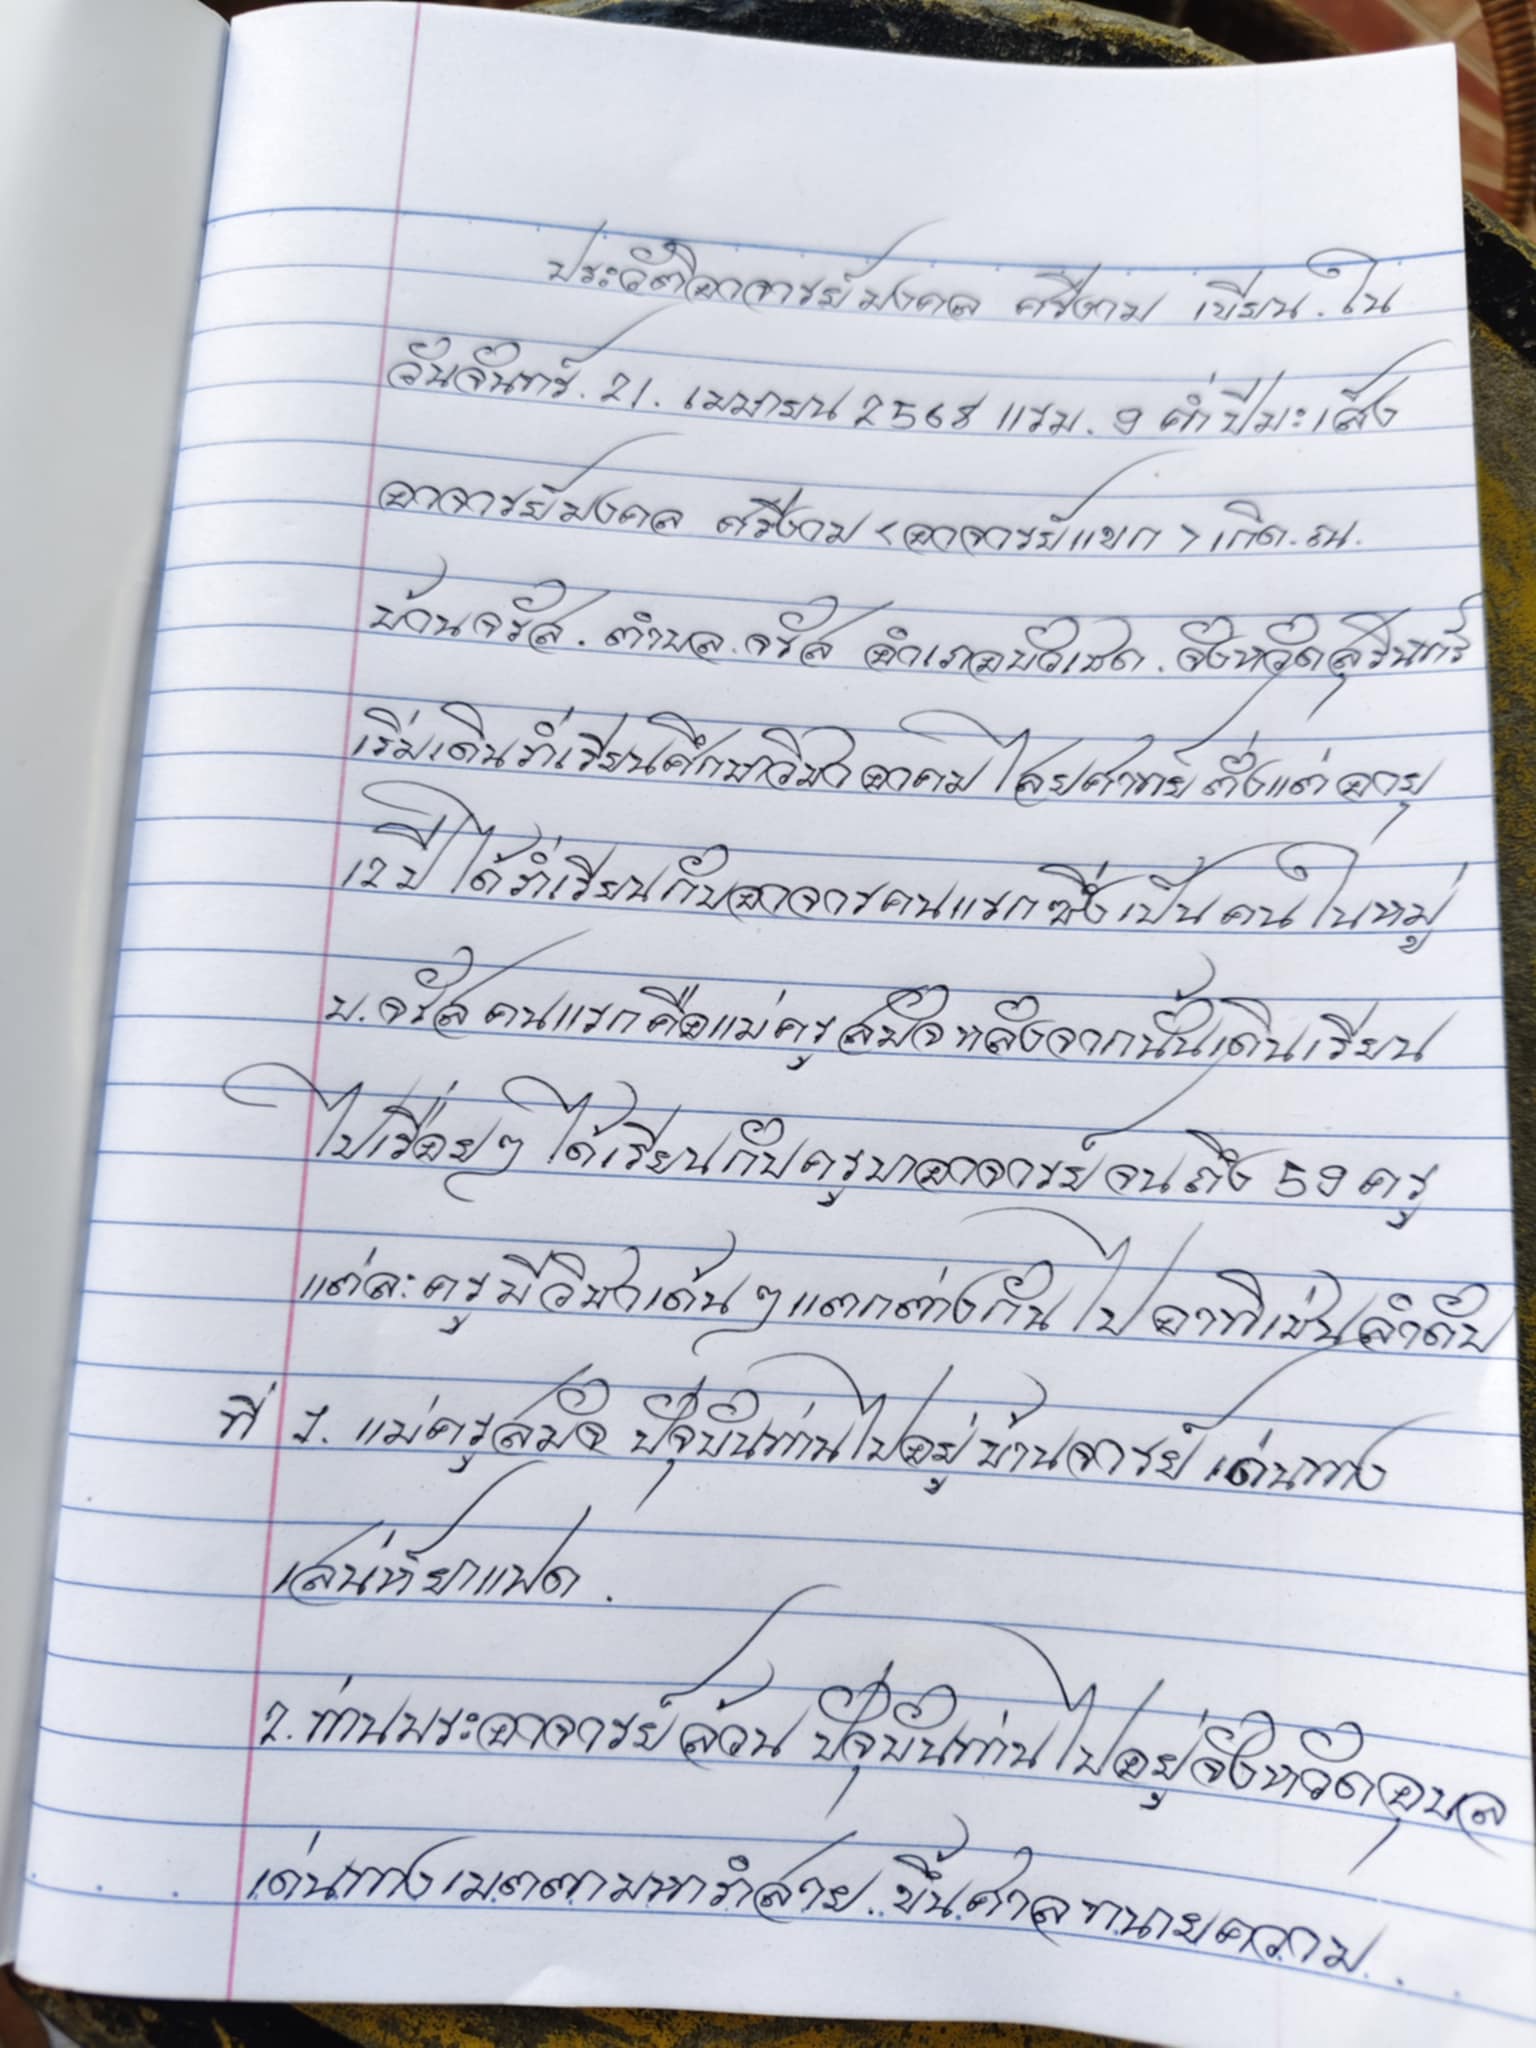 ประวัติอาจารย์มงคล ศรีงาม เขียน.ใน
วันจันทร์.21.เมษายน 2568 แรม.9 ค่ำปีมะเส็ง
อาจารย์มงคล ศรีงาม <อาจารย์แขก> เกิด.ณ.
บ้านจรัส.ตำบล.จรัส อำเภอบัวเชด.จังหวัดสุรินทร์
เริ่มเดินร่ำเรียนศึกษาวิชาอาคมไสยศาทย์ตั้งแต่อายุ
12ปี ได้ร่ำเรียนกับอาจารคนแรกซึ่งเป็นคนในหมู่
บ.จรัสคนแรกคือแม่ครูสมัจหลังจากนั้นเดินเรียน
ไปเรื่อยๆ ได้เรียนกับครูบาอาจารย์จนถึง 59 ครู
แต่ละครูมีวิชาเด่นๆแตกต่างกันไปอาทิเช่นลำดับ
ที่ 1. แม่ครูสมัจ ปัจุบันท่านไปอยู่บ้านจารย์ เด่นทาง
เสน่ห์ยาแฝด.
2.ท่านพระอาจารย์ล้วน ปัจุบันท่านไปอยู่จังหวัดอุบล
เด่นทางเมตตามหารำสาย..ขึ้นศาลทนายความ...